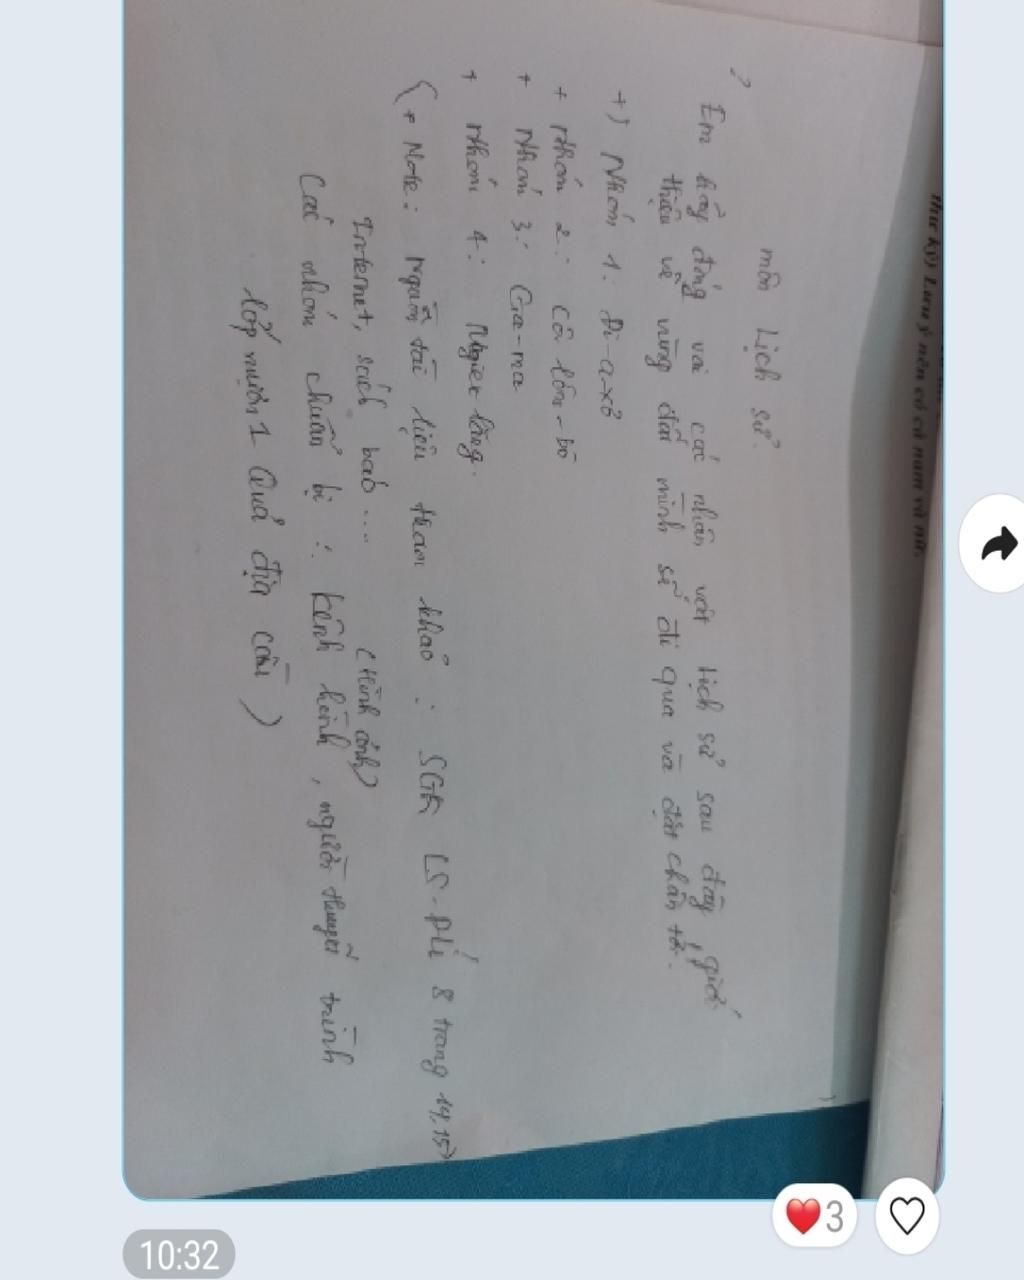 thư ký) Lưu ý nên có cả nam và nữ.
môn Lịch sử.
? Em hãy đóng vai các nhân vật lịch sử sau đây, giới
thiệu về vùng đất mình sẽ đi qua và đặt chân tới.
+) Nhóm 1: Đi-a-xơ
+ Nhóm 2: Cô lôm-bô
+ Nhóm 3: Ga-ma
+ Nhóm 4: Magien lăng.
(+ Note: Nguồn tài liệu tham khảo: SGK LS-ĐLí 8 trang 14,15)
Internet, sách báo.... (Hình ảnh)
Các nhóm chuẩn bị: kênh hình, người thuyết trình
lớp mượn 1 Quả địa cầu)
3
10:32